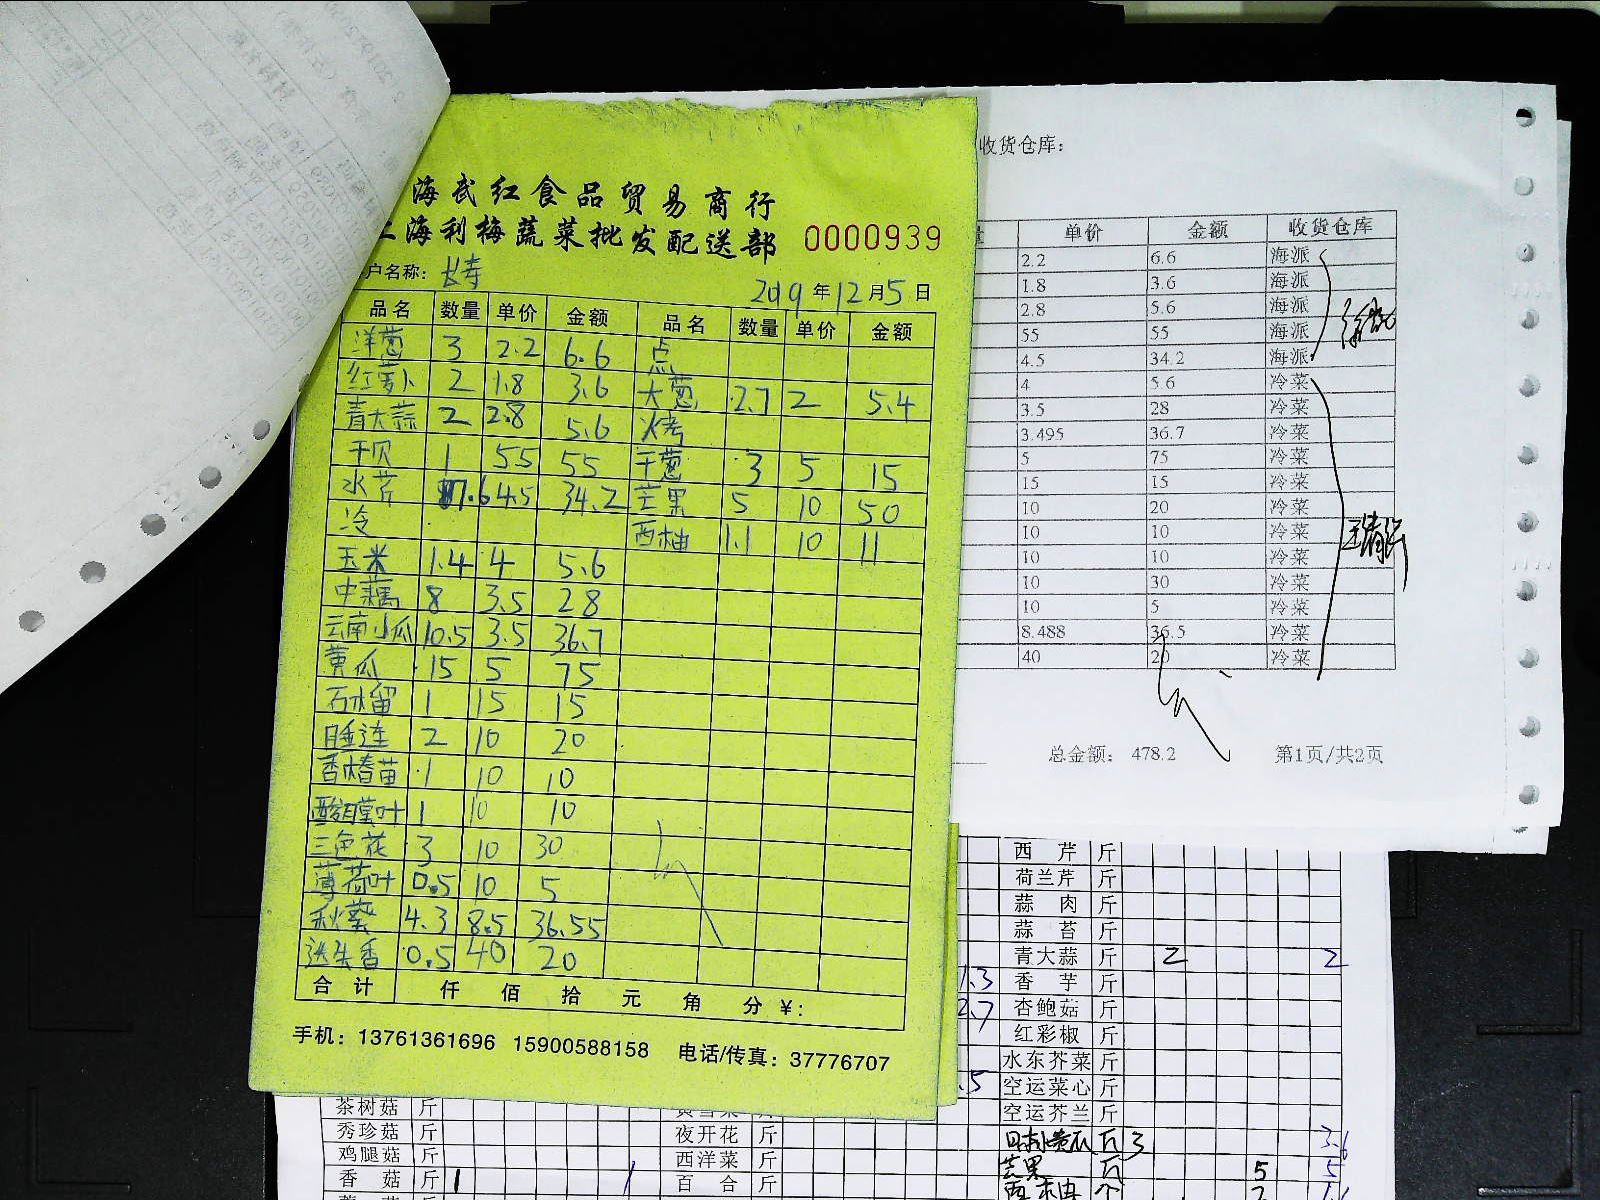 海武红食品贸易商行
上海利梅蔬菜批发配送部 0000939
户名称: 长寿
2019年12月5日
品名 数量 单价 金额 品名 数量 单价 金额
洋葱 3 2.2 6.6 点
红萝卜 2 1.8 3.6 大葱 2.7 2 5.4
青大蒜 2 2.8 5.6 烤
干贝 1 55 55 干葱 3 5 15
水芹 7.6 4.5 34.2 芒果 5 10 50
冷 西柚 1.1 10 11
玉米 1.4 4 5.6
中藕 8 3.5 28
云南小瓜 10.5 3.5 36.7
黄瓜 15 5 75
石榴 1 15 15
睡连 2 10 20
香椿苗 1 10 10
酸膜叶 1 10 10
三色花 3 10 30
薄荷叶 0.5 10 5
秋葵 4.3 8.5 36.55
迷失香 0.5 40 20
合计 仟 佰 拾 元 角 分 ¥:
手机: 13761361696 15900588158 电话/传真: 37776707
收货仓库:
量 单价 金额 收货仓库
2.2 6.6 海派
1.8 3.6 海派
2.8 5.6 海派
55 55 海派
4.5 34.2 海派
4 5.6 冷菜
3.5 28 冷菜
3.495 36.7 冷菜
5 75 冷菜
15 15 冷菜
10 20 冷菜
10 10 冷菜
10 10 冷菜
10 30 冷菜
10 5 冷菜
8.488 36.5 冷菜
40 20 冷菜
总金额: 478.2 第1页/共2页
西芹 斤
荷兰芹 斤
蒜肉 斤
蒜苔 斤
青大蒜 斤 2 2
1.3 香芋 斤
2.7 杏鲍菇 斤
红彩椒 斤
水东芥菜 斤
.5 空运菜心 斤
空运芥兰 斤
斤 3 3.6
芒果 斤 5 5
西柚 个
茶树菇 斤
秀珍菇 斤 夜开花 斤
鸡腿菇 斤 西洋菜 斤
香菇 斤 1 1 百合 斤